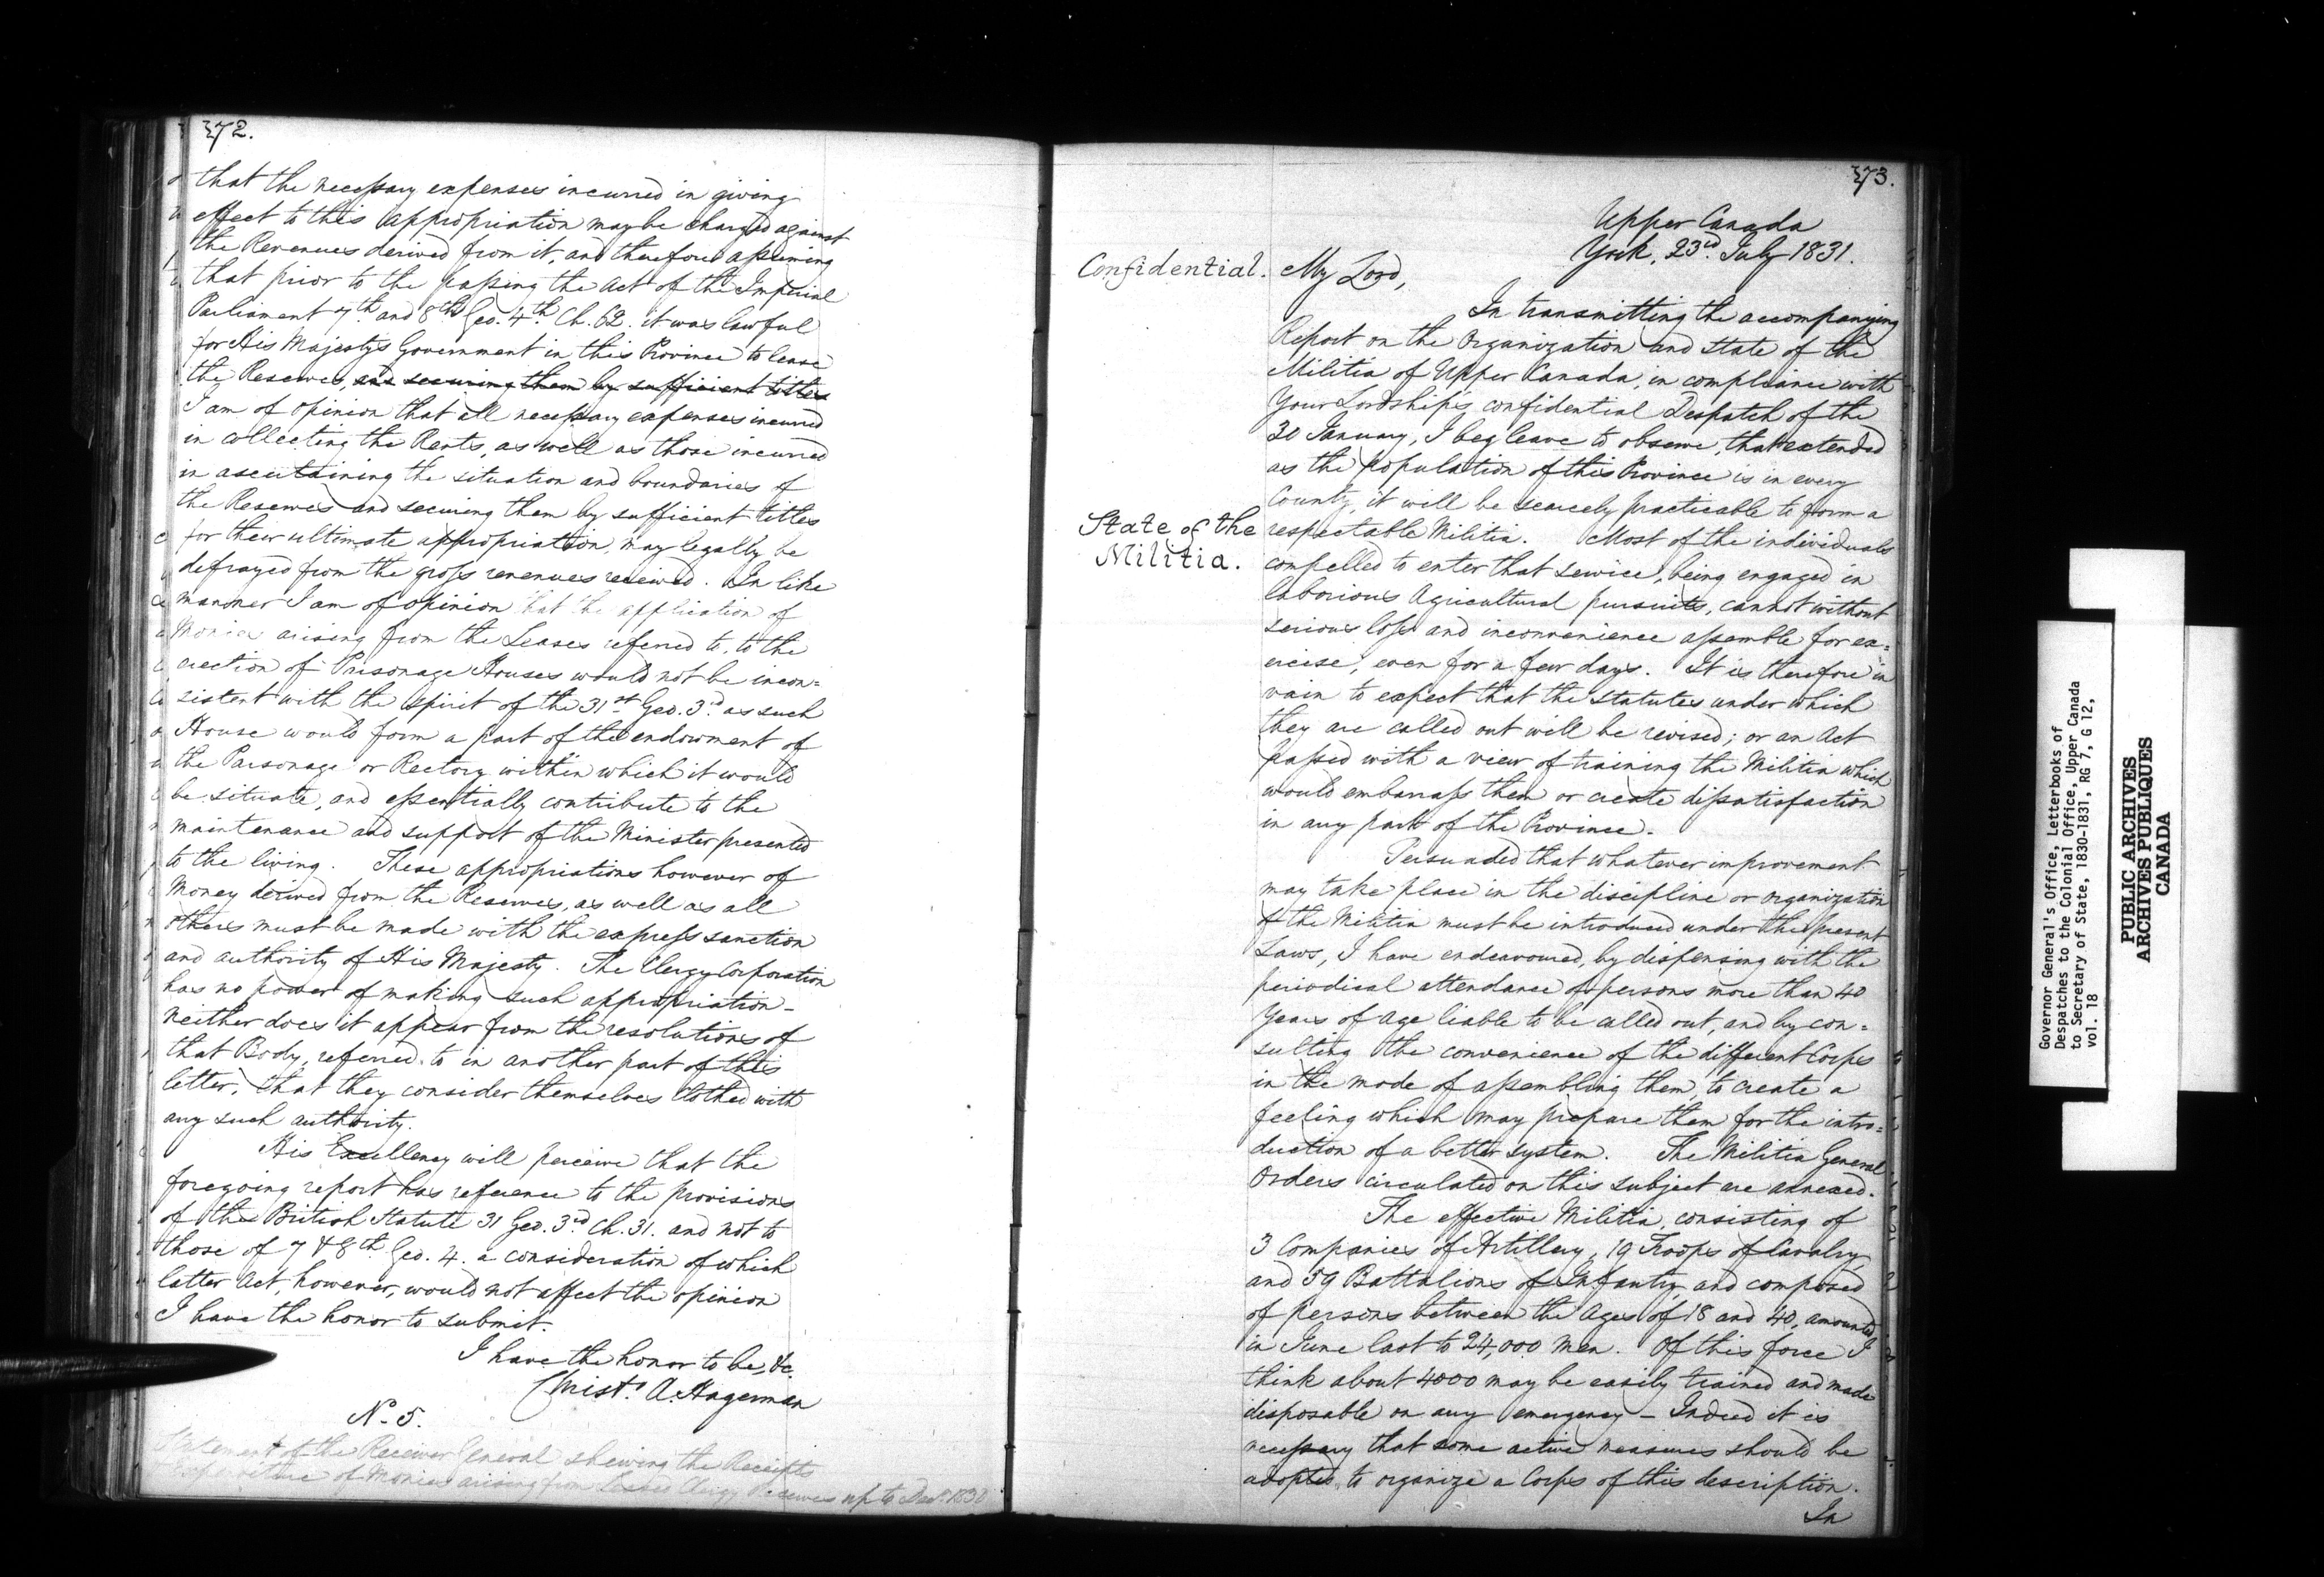 372.
that the necessary expenses incurred in giving
effect to this appropriation may be charged against
the Revenues derived from it, and therefore assuming
that prior to the passing the Act of the Imperial
Parliament 7th and 8th Geo. 4th Ch. 62. it was lawful
for His Majesty's Government in this Province to lease
the Reserves, and securing them by sufficient titles
I am of opinion that all necessary expenses incurred
in collecting the Rents, as well as those incurred
in ascertaining the situation and boundaries of
the Reserves and securing them by sufficient titles
for their ultimate appropriation, may legally be
defrayed from the gross revenues received. In like
manner I am of opinion that the application of
Monies arising from the Leases referred to, to the
erection of Parsonage Houses would not be incon=
sistent with the spirit of the 31st Geo. 3d. as such
House would form a part of the endowment of
the Parsonage or Rectory within which it would
be situate, and essentially contribute to the
maintenance and support of the Minister presented
to the living. These appropriations however of
Money derived from the Reserves, as well as all
others must be made with the express sanction
and authority of His Majesty. The Clergy Corporation
has no power of making such appropriation –
neither does it appear from the resolutions of
that Body, referred to in another part of this
letter, that they consider themselves clothed with
any such authority.
His Excellency will perceive that the
foregoing report has reference to the provisions
of the British Statute 31 Geo. 3rd Ch. 31. and not to
those of 7 & 8th Geo. 4. a consideration of which
latter Act, however, would not affect the opinion
I have the honor to submit.
I have the honor to be, &c.
Christ. A. Hagerman
No. 5.
Statement of the Receiver General shewing the Receipts
Expenditure of Monies arising from Leased Clergy Reserves up to Decr. 1830
373.
Upper Canada
York, 23rd July 1831.
Confidential. My Lord,
In transmitting the accompanying
Report on the Organization and State of the
Militia of Upper Canada, in compliance with
Your Lordship's confidential Despatch of the
30 January, I beg leave to observe, that extended
as the population of this Province is in every
County, it will be scarcely practicable to form a
State of the
Militia.
respectable Militia. Most of the individuals
compelled to enter that service, being engaged in
laborious Agricultural pursuits, cannot without
serious loss and inconvenience assemble for ex=
ercise, even for a few days. It is therefore in
vain to expect that the Statutes under which
they are called out will be revised; or an Act
passed with a view of training the Militia which
would embarrass them or create dissatisfaction
in any part of the Province.
Persuaded that whatever improvement
may take place in the discipline or organization
of the Militia must be introduced under the present
Laws, I have endeavoured, by dispensing with the
periodical attendance of persons more than 40
Years of Age liable to be called out, and by con=
sulting the convenience of the different Corps
in the mode of assembling them, to create a
feeling which may prepare them for the intro=
duction of a better system. The Militia General
Orders circulated on this subject are annexed.
The effective Militia, consisting of
3 Companies of Artillery, 19 Troops of Cavalry,
and 59 Battalions of Infantry, and composed
of persons between the Ages of 18 and 40, amounted
in June last to 24,000 Men. Of this force I
think about 4000 may be easily trained and made
disposable on any emergency – Indeed it is
necessary that some active measures should be
adopted to organize a Corps of this description.
In
Governor General's Office, Letterbooks of
Despatches to the Colonial Office, Upper Canada
to Secretary of State, 1830-1831, RG 7, G 12,
vol. 18
PUBLIC ARCHIVES
ARCHIVES PUBLIQUES
CANADA